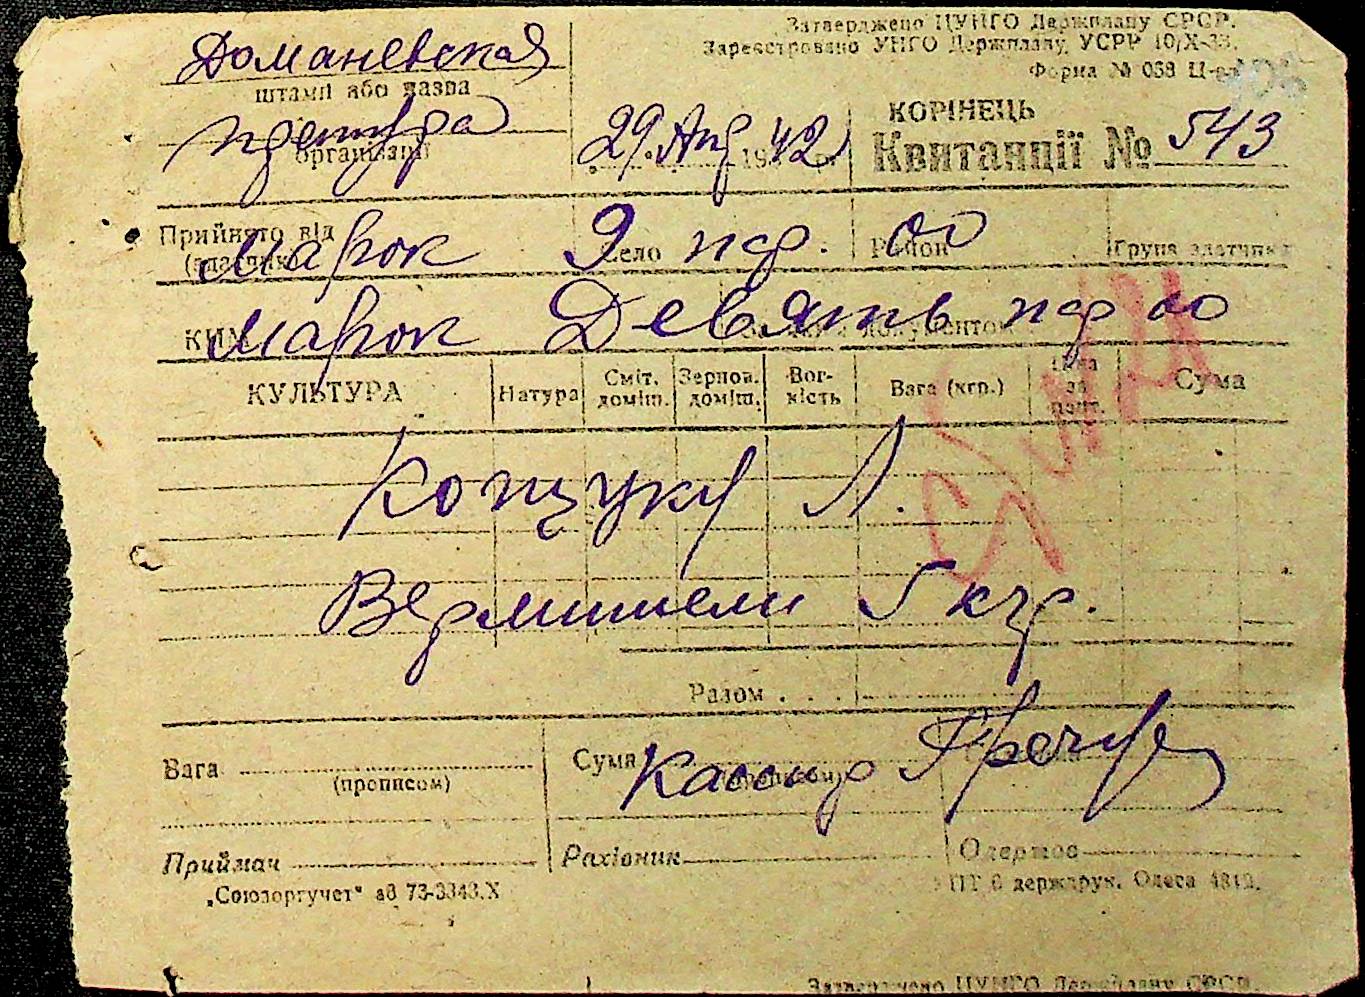 Затверджено ЦУНГО Держплану СРСР.
Зареєстровано УНГО Держплану, УСРР 10/X-33.
Форма № 068 Ц-
Доманевская
штамп або назва
претура
організації
29 Авг 1942 р.
КОРІНЕЦЬ
Квитанції № 543
Прийнято від
(здатчик)
Марок 9 пф. 00
Село
Район
Група здатчика
КИМ
Марок Девять пф 00
документом
КУЛЬТУРА Натура Сміт. доміш. Зернов. доміш. Вог-кість Вага (кгр.) Ціна за цент. Сума
Копщуку Л.
Вермишели 5 кгр.
Разом . . .
Вага
(прописом)
Сума
(прописом)
Кассир
Приймач Рахівник Одержав
„Союзоргучет“ ав 73-3343.X
держдрук. Одеса 4812.
Затверджено ЦУНГО Держплану СРСР.